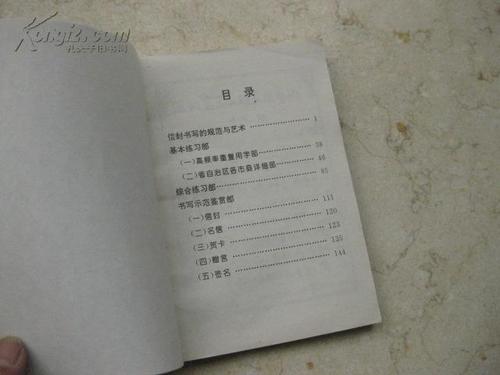 Kongfz.com
孔夫子旧书网
目录
信封书写的规范与艺术 1
基本练习部
(一)高频率重复用字部 38
(二)省自治区各市县详细部 46
综合练习部 85
书写示范鉴赏部
(一)信封 111
(二)名信 120
(三)贺卡 123
(四)赠言 135
(五)签名 144